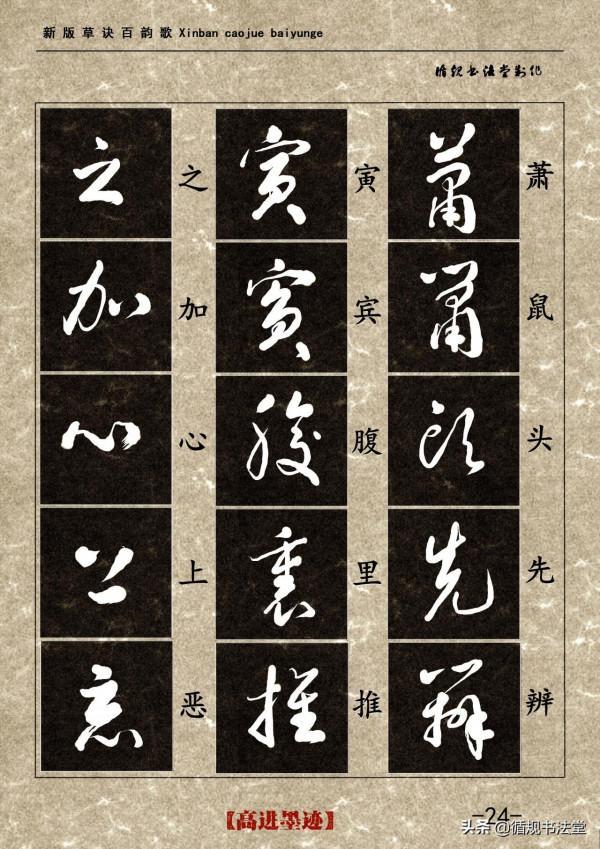 新版草诀百韵歌 Xinban caojue baiyunge
循规书法堂制作
萧鼠头先辨
萧鼠头先辨
寅宾腹里推
寅宾腹里推
之加心上恶
之加心上恶
【高进墨迹】
-24-
头条@循规书法堂